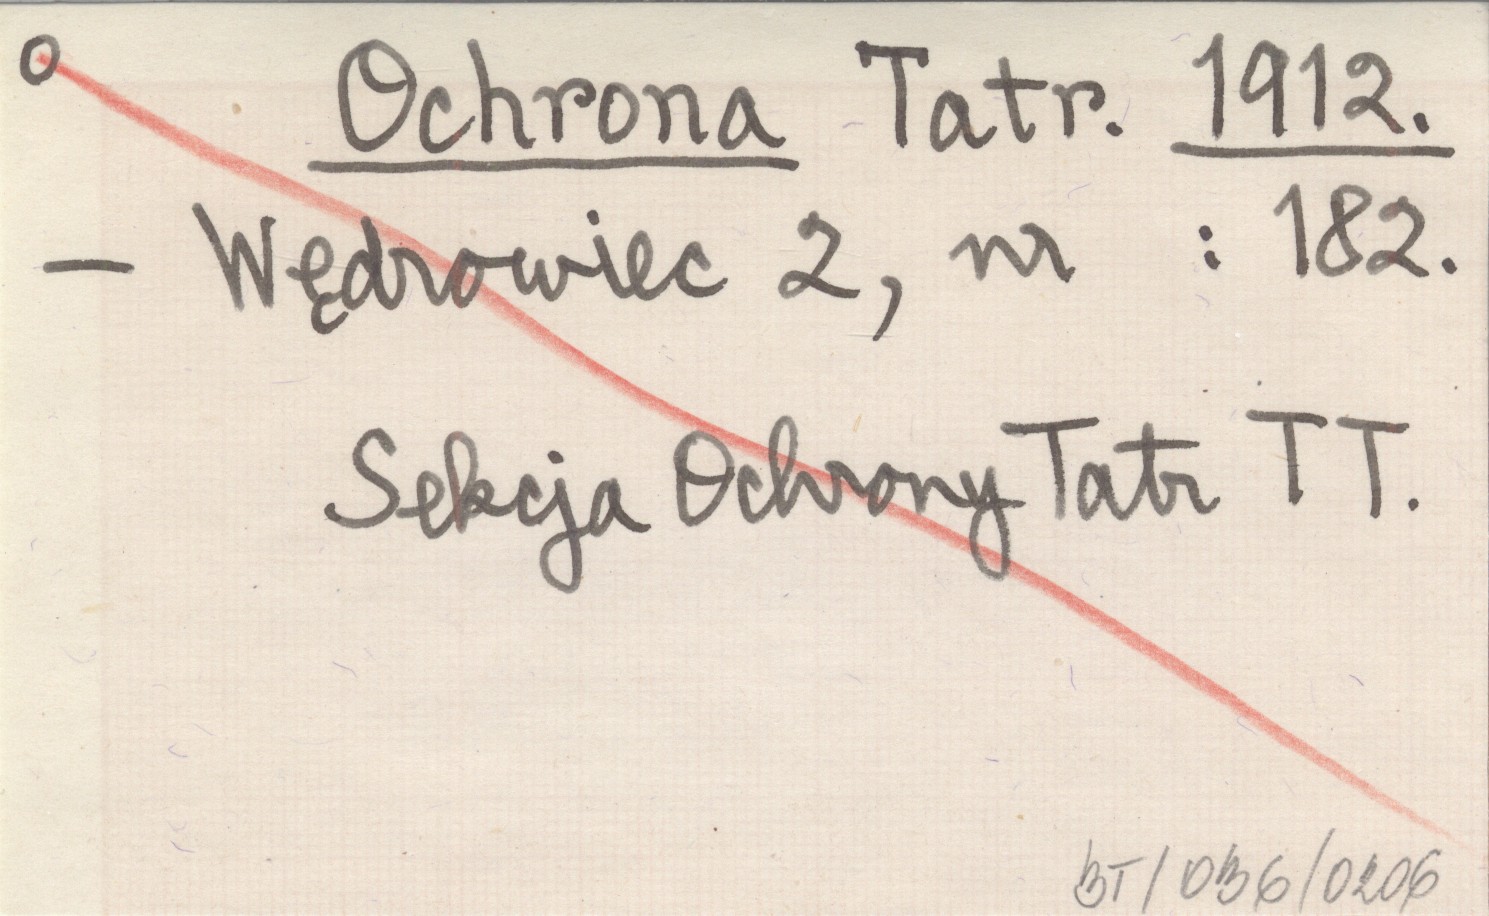 O Ochrona Tatr. 1912.
— Wędrowiec 2, nr : 182.
Sekcja Ochrony Tatr TT.
BT/036/0206